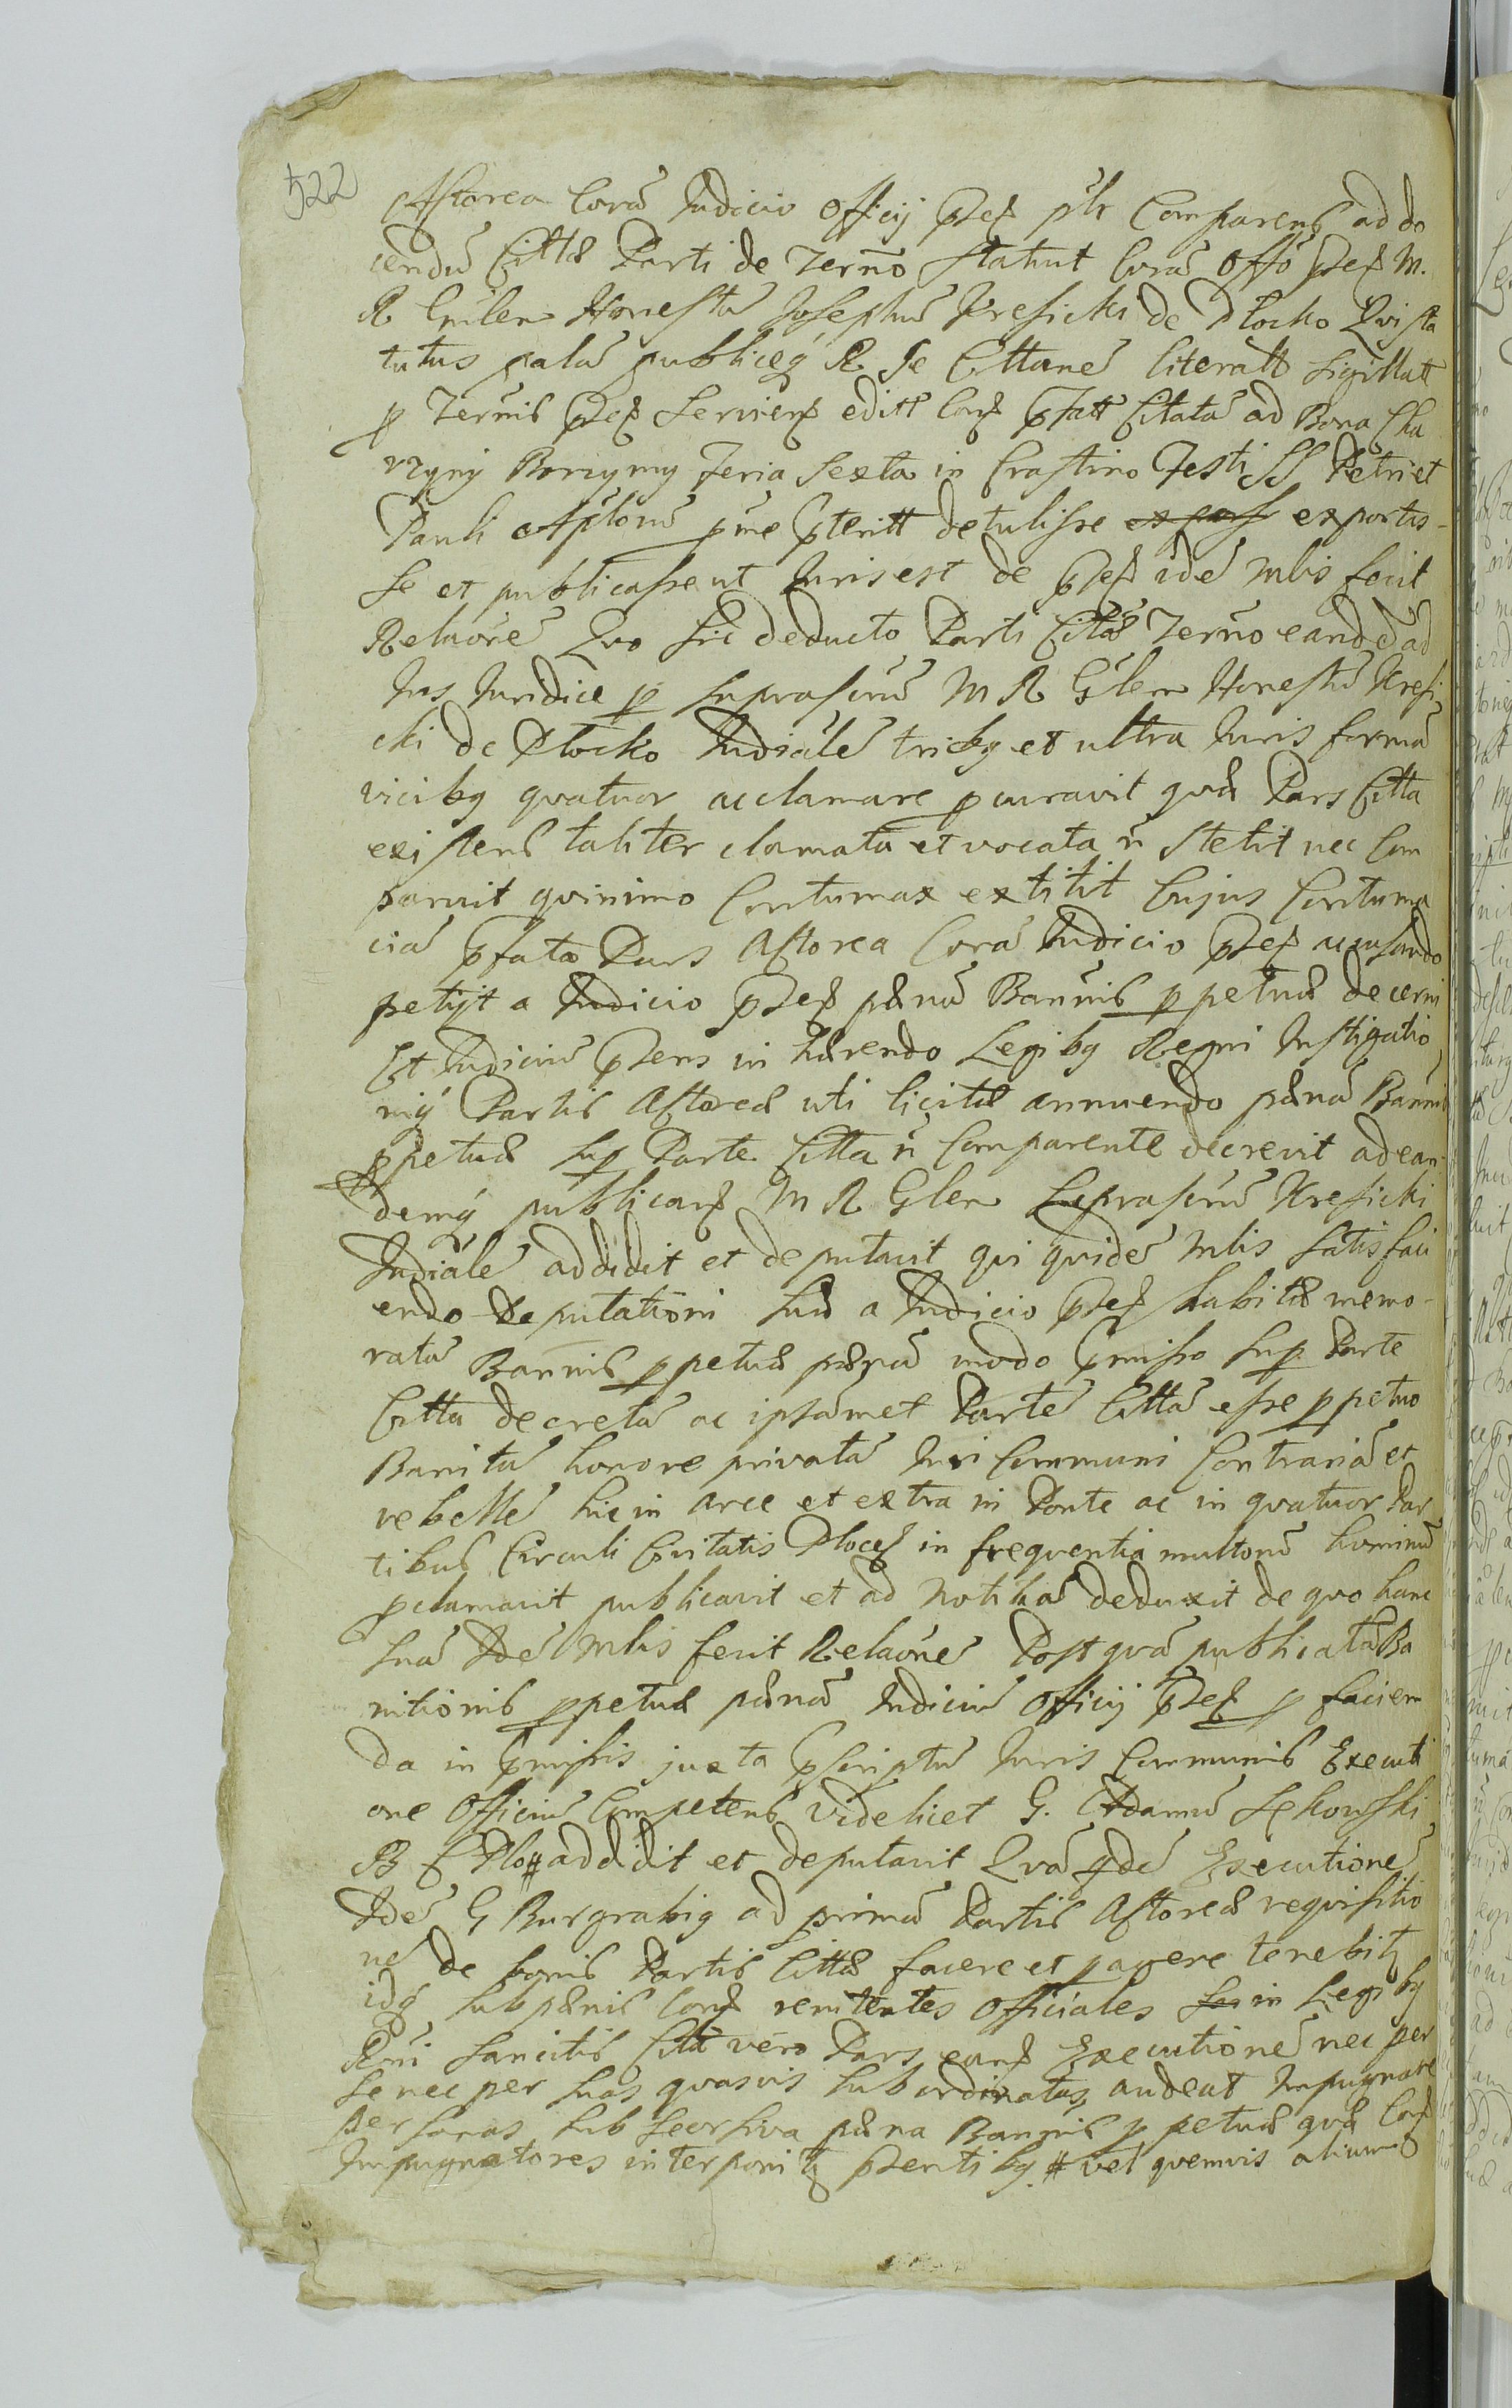 522
Actorea Corã Judicio Officij pntẽ plr Comparens ad do
cendũ Cittæ Parti de Termno statuit Corã Offo pntẽ M.
R Gnlem Honestũ Josephũ Kresicki de Plocko Qui sta
tutus palã publiceq R Se Cittonẽ literatt sigillatt
p Termis pntẽ Servien editt Cont pfatt Citatã ad Bona Cha
rzyny Borzymy Feria Sexta in Crastino Festi SS Petri et
Pauli Aplorũ pme pteritt detulisse exportas
se et publicasse ut Juris est de pntẽ idẽ Mlis fecit
Relaõnẽ Quo sic deducto Parti Cittæ Termno eandẽ ad
Jus Juridice p suprascriũ M R Gnlem Honestũ Kresi
cki de Plocko Judialẽ tribq et ultra Juris formã
vicibq quatuor acclamare pcuravit quæ Pars Citta
existens taliter clamata et vocata ñ stetit nec Com
paruit quinimo Contumax extitit Cujus Contuma
ciã pfata Pars Actorea Corã Judicio pntẽ accusando
petijt a Judicio pntẽ pænã Bannis ppetuæ decerni
Et Judiciũ pñs in hærendo Legibq Regni Instigatio
niq Partis Actoreæ uti licitæ annuendo pænã Bannis
ppetuæ sup Parte Citta ñ Comparente decrevit ad ean
demq publicand M R Glem Suprascriũ Kresicki
Judialẽ addidit et deputavit qui quidẽ Mlis satisfaci
endo Deputationi suæ a Judicio pntẽ habitæ memo-
ratã Bannis ppetuæ pænã modo pmisso sup Parte
Citta decretã ac ipsamet Partẽ Cittã esse ppetuo
Banitã honore privatã Juri Communi Contrariã et
rebellẽ hic in arce et extra in Ponte ac in quatuor Par
tibus Circuli Civitatis Plocẽ in frequentia multorũ hominũ
pclamavit publicavit et ad notitiã deduxit de quo hanc
suã Idẽ Mlis fecit Relaõnẽ Post quã publicatã Ba
nitionis ppetuæ pænã Judiciũ Officij pntẽ p facien
da in pmissis juxta pscriptũ Juris Communis Executi
one Officiũ Competens videlicet G. Adamũ Sękowski
B C Plo # addidit et deputavit Quã qdẽ Executionẽ
Idẽ G Burgrabiq ad primã Partis Actoreæ requisitio
nẽ de bonis Partis Cittæ facere et pagere tenebitr
idq sub pænis Cont renitentes Officiales in Legibq
Rgni sancitis Citta vero Pars eand Executionẽ nec per
se nec per suas quasvis subordinatas audeat Impugnare
personas sub seorsiva pæna Bannis ppetuæ quæ Cont
Impugnatores interponitr pntibq # vel quemvis aliumq